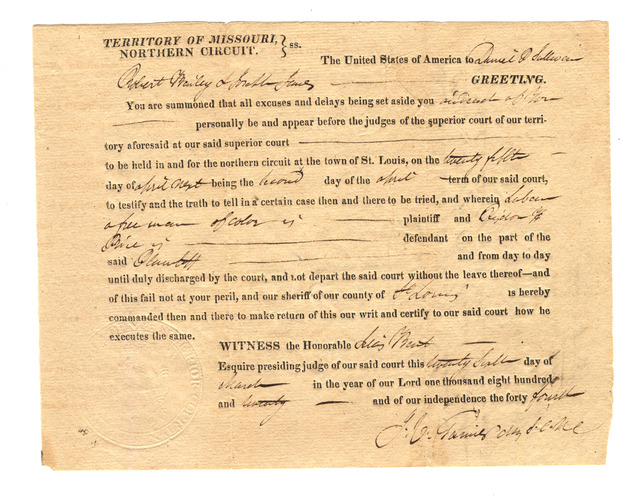 TERRITORY OF MISSOURI,
NORTHERN CIRCUIT. } ss.
The United States of America to Daniel D Sullivan
Robert Bailey & Jones GREETING.
You are summoned that all excuses and delays being set aside you and each of you
personally be and appear before the judges of the superior court of our terri-
tory aforesaid at our said superior court
to be held in and for the northern circuit at the town of St. Louis, on the twenty fifth
day of april next being the second day of the april term of our said court,
to testify and the truth to tell in a certain case then and there to be tried, and wherein Laban
a free man of color is plaintiff and
Price is defendant on the part of the
said Plaintiff and from day to day
until duly discharged by the court, and not depart the said court without the leave thereof—and
of this fail not at your peril, and our sheriff of our county of St Louis is hereby
commanded then and there to make return of this our writ and certify to our said court how he
executes the same.
WITNESS the Honorable
Esquire presiding judge of our said court this twenty day of
march in the year of our Lord one thousand eight hundred
and twenty and of our independence the forty fourth